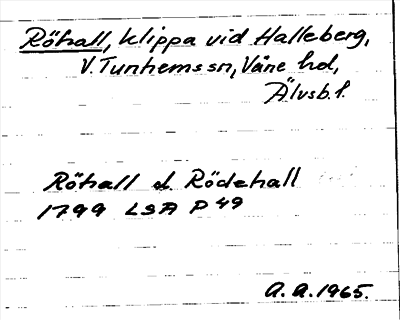 Röhall, klippa vid Halleberg,
V. Tunhems sn, Väne hd,
Älvsb. l.
Röhall el. Rödehall
1799 LSA P 49
A. A. 1965.